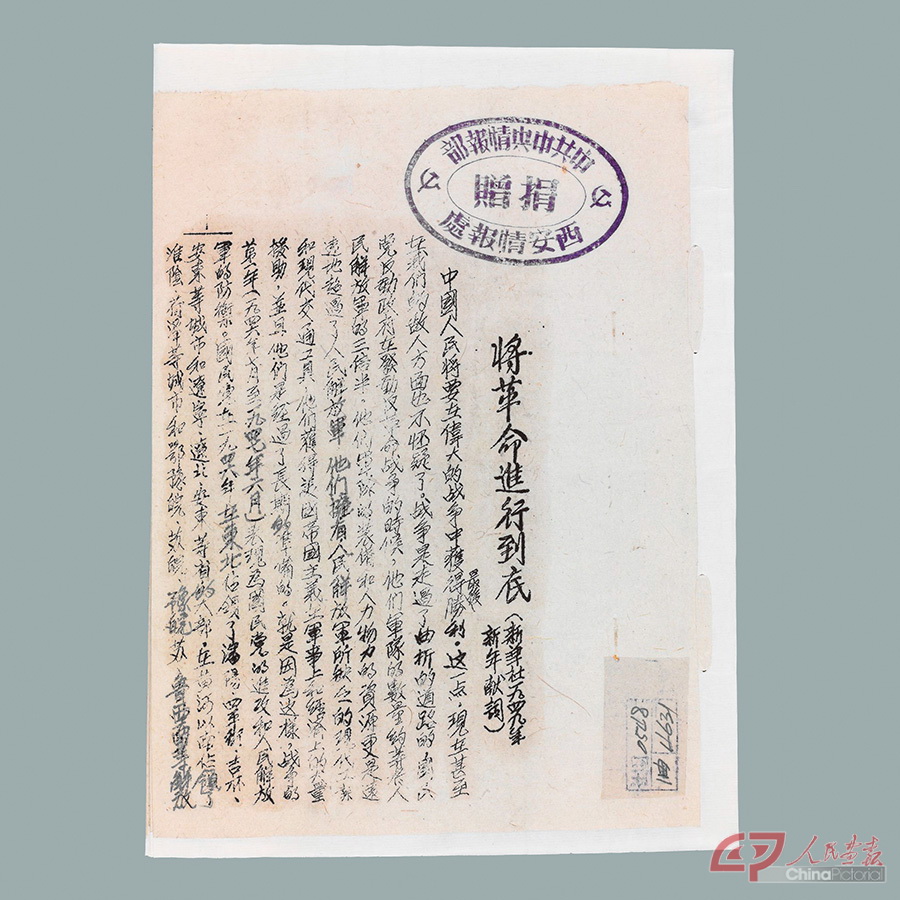 中共中央情報部
捐贈
西安情報處
将革命進行到底（新華社一九四九年
新年献詞）
中國人民将要在偉大的战争中獲得最後勝利。这一点，現在甚至
在我们的敌人方面也不怀疑了。战争是走過了曲折的道路的。國民
党反動政府在發動反革命战争的時候，他们軍隊的数量约等於人
民解放軍的三倍半，他们軍隊的装備和人力物力的資源更是遠
遠地超過了人民解放軍，他们擁有人民解放軍所缺乏的現代工業
和現代交通工具，他们獲得美國帝國主義在軍事上和經濟上的大量
援助，並且他们是經過了長期的準備的。就是因為这樣，战争的
第一年（一九四六年七月至一九四七年六月）表現為國民党的進攻和人民解放
軍的防禦。國民党在一九四六年在東北佔領了瀋陽、四平、吉林、
安東等城市和遼寧、遼北、安東等省的大部，在黄河以南佔領了
淮陰、荷澤等城市和鄂豫皖、苏皖、豫皖苏、魯西南等解放
人民画报
ChinaPictorial